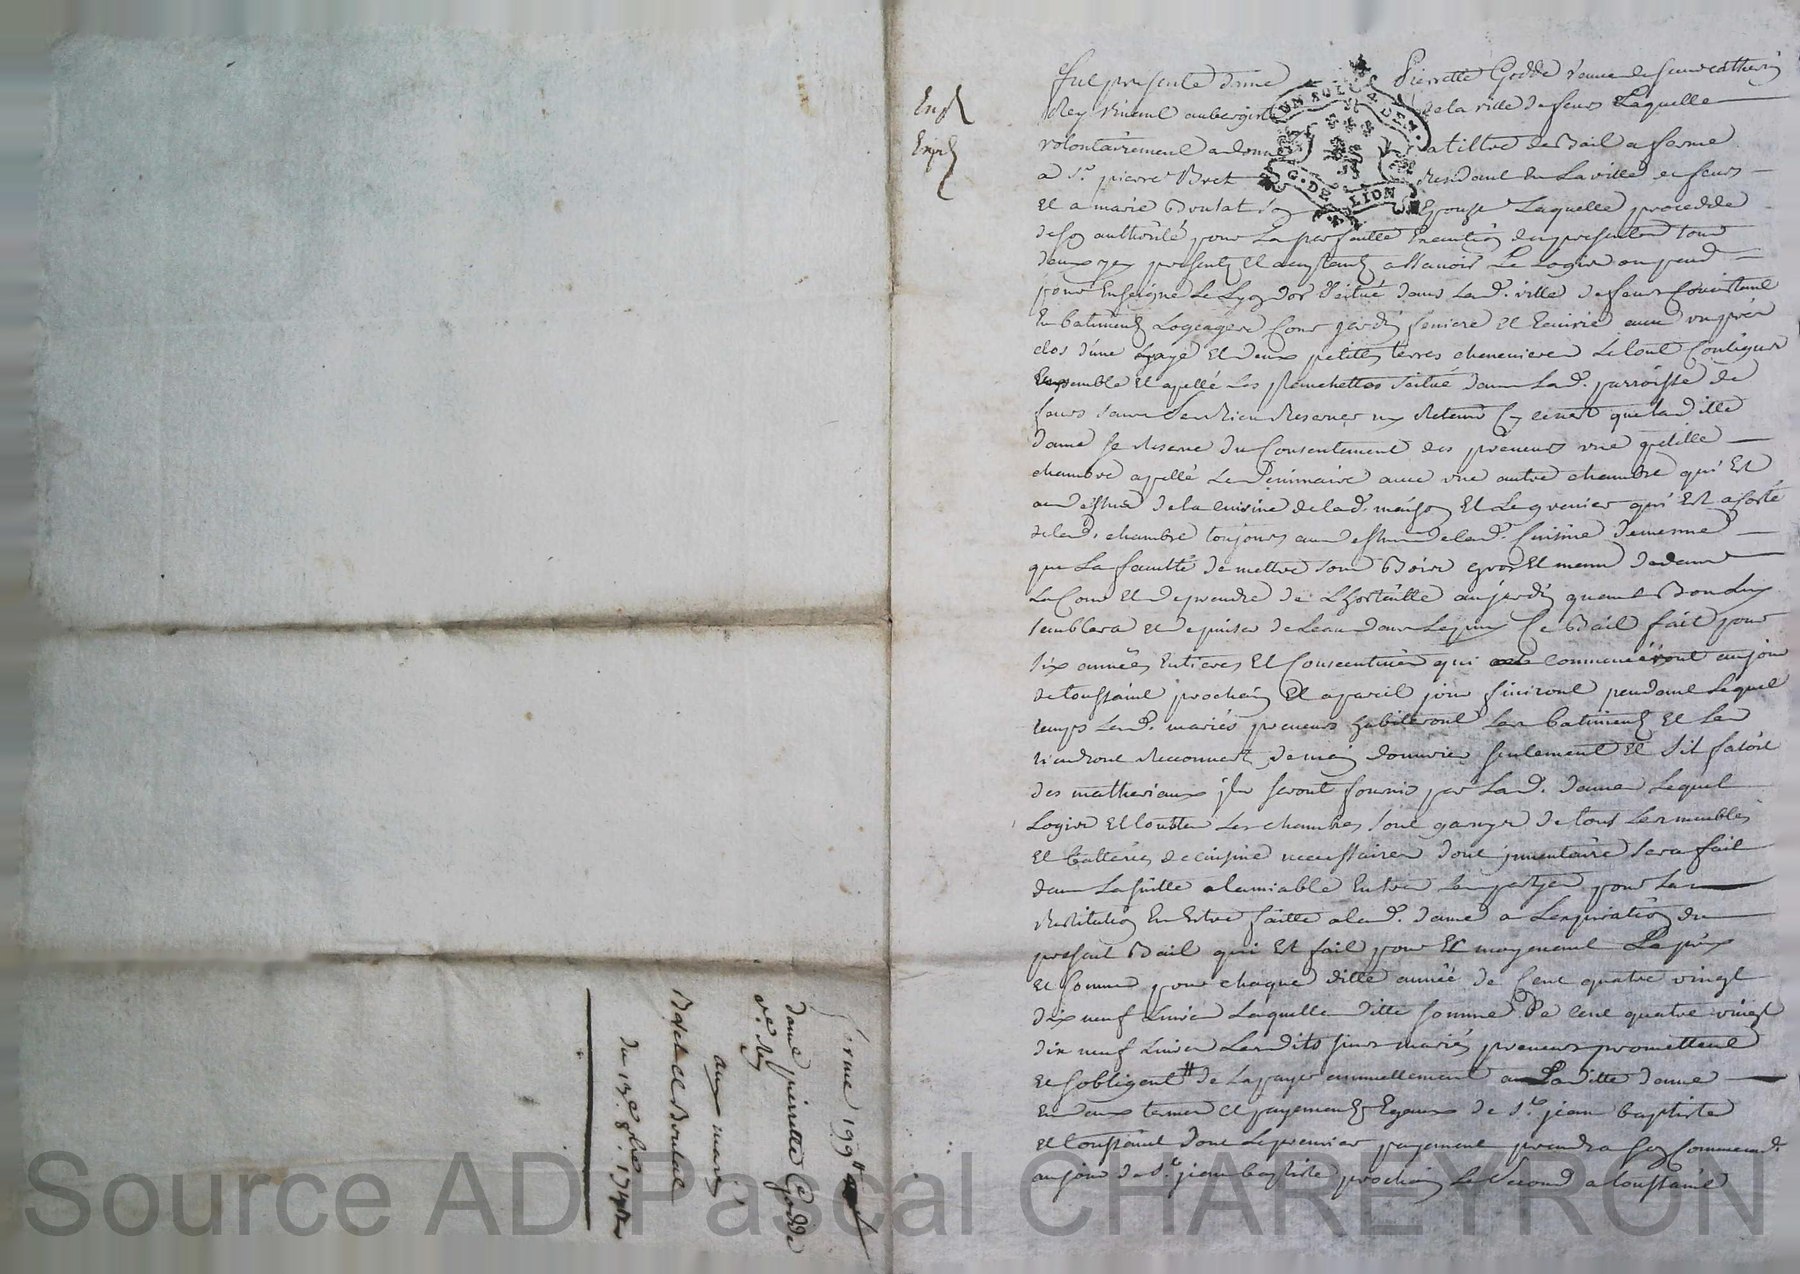 Exp
Expé
Fut presente dame Pierrette Godde veuve de sieur catherin
Rey vivant aubergiste de la ville de feurs Laquelle
volontairement a donné a tiltre de Bail a ferme
a Sr. pierre Bret Residant En La ville de feurs
Et a marie Boulat son Epouse Laquelle procedde
de son authorité pour La parfaitte Execution des presentes tous
deux icy presents Et acceptants assavoir Le Logis ou pend
pour Enseigne Le Lyon dor scitué dans Lad. ville de feurs Consistant
En batiments Logeages Cour jardin feniere Et Ecurie avec un pré
clos d'une haye Et deux petittes terres chenevieres Le tout Contigus
Ensemble Et apellé Les planchettes scitué dans Lad. parroisse de
feurs sans En Rien Reserver ny Retenir sy ce n'est que laditte
dame se Reserve du Consentement des preneurs une petitte
chambre apellé Le avec une autre chambre qui Est
au dessus de la cuisine de lad. maison Et Le grenier qui Est a Costé
de lad. chambre toujours au dessus de lad. Cuisine de mesme
que La faculté de mettre son Bois gros Et menu dedans
La Cour Et de prendre de L'hortaille au jardin quand Bon luy
semblera et de puiser de Leau dans Le puy Ce Bail fait pour
six années Entieres Et Consecutives qui commenceront au jour
de toussaint prochain Et a pareil jour finiront pendant Lequel
temps Lesd. mariés preneurs habiteront Les batiments Et Les
tiendront Recouvert de main d'ouvrier seulement Et s'il falois
des matheriaux ils seront fournis par Lad. dame Lequel
Logis Et touttes Les chambres sont garnys de tous Les meubles
Et batteries de cuisine necessaires dont inventaire sera fait
dans La suitte a lamiable Entre Les partyes pour La
Restitution En Estre faitte a lad. dame a Lexpiration du
present Bail qui Est fait pour Et moyenant Le prix
Et somme pour chaque ditte année de Cent quatre vingt
dix neuf Livres Laquelle ditte somme De Cent quatre vingt
dix neuf Livres Lesdits sieurs mariés preneurs promettent
Et sobligent de La payer annuellement a Laditte dame
En deux termes et payements Egaux de St. jean baptiste
Et toussaint dont Le premier payement prendra son Commenct.
au jour de St. jean baptiste prochain Le second a toussaint
UN SOL 4 DEN.
G. DE LION
ferme 199tt
dame pierrette Godde
ve. Rey
aux mariés
Bret et Boulat
du 13e. 8bre.
Source AD Pascal CHAREYRON